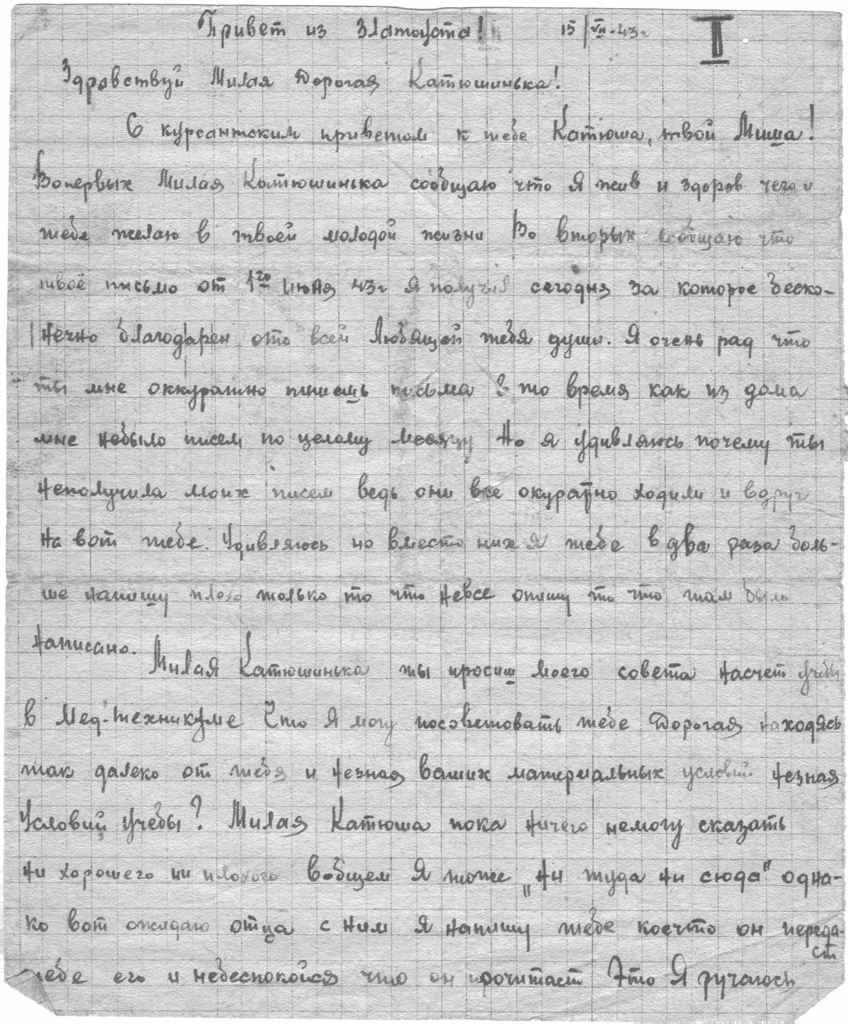 Привет из Златоуста! 15/VII-43г I
Здравствуй Милая Дорогая Катюшинька!
С курсантским приветом к тебе Катюша, твой Миша!
Вопервых Милая Катюшинька сообщаю что Я жив и здоров чего и
тебе желаю в твоей молодой жизни Во вторых сообщаю что
твоё письмо от 1го июня 43г Я получил сегодня за которое беско-
нечно благодарен ото всей Любящей тебя души. Я очень рад что
ты мне оккуратно пишешь письма в то время как из дома
мне небыло писем по целому месяцу Но я удивляюсь почему ты
неполучила моих писем ведь они все окуратно ходили и вдруг
на вот тебе. Удивляюсь но вместо них Я тебе в два раза боль-
ше напишу плохо только то что невсе опишу то что там было
написано.
Милая Катюшинька ты просиш моего совета насчет учебы
в Мед-техникуме Что Я могу посоветовать тебе Дорогая находясь
так далеко от тебя и незная ваших материальных условий незная
Условий учебы? Милая Катюша пока ничего немогу сказать
ни хорошего ни плохого Вобщем Я тоже „Ни туда ни сюда" одна-
ко вот ожидаю отца с ним Я напишу тебе коечто он переда-
ст
тебе его и небеспокойся что он прочитает Это Я ручаюсь